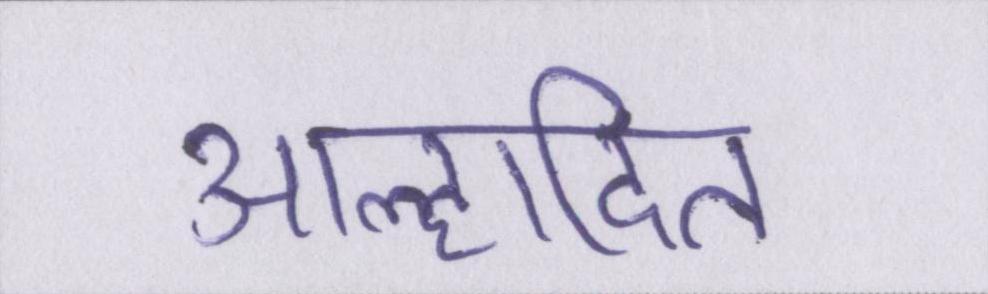 आल्हादित